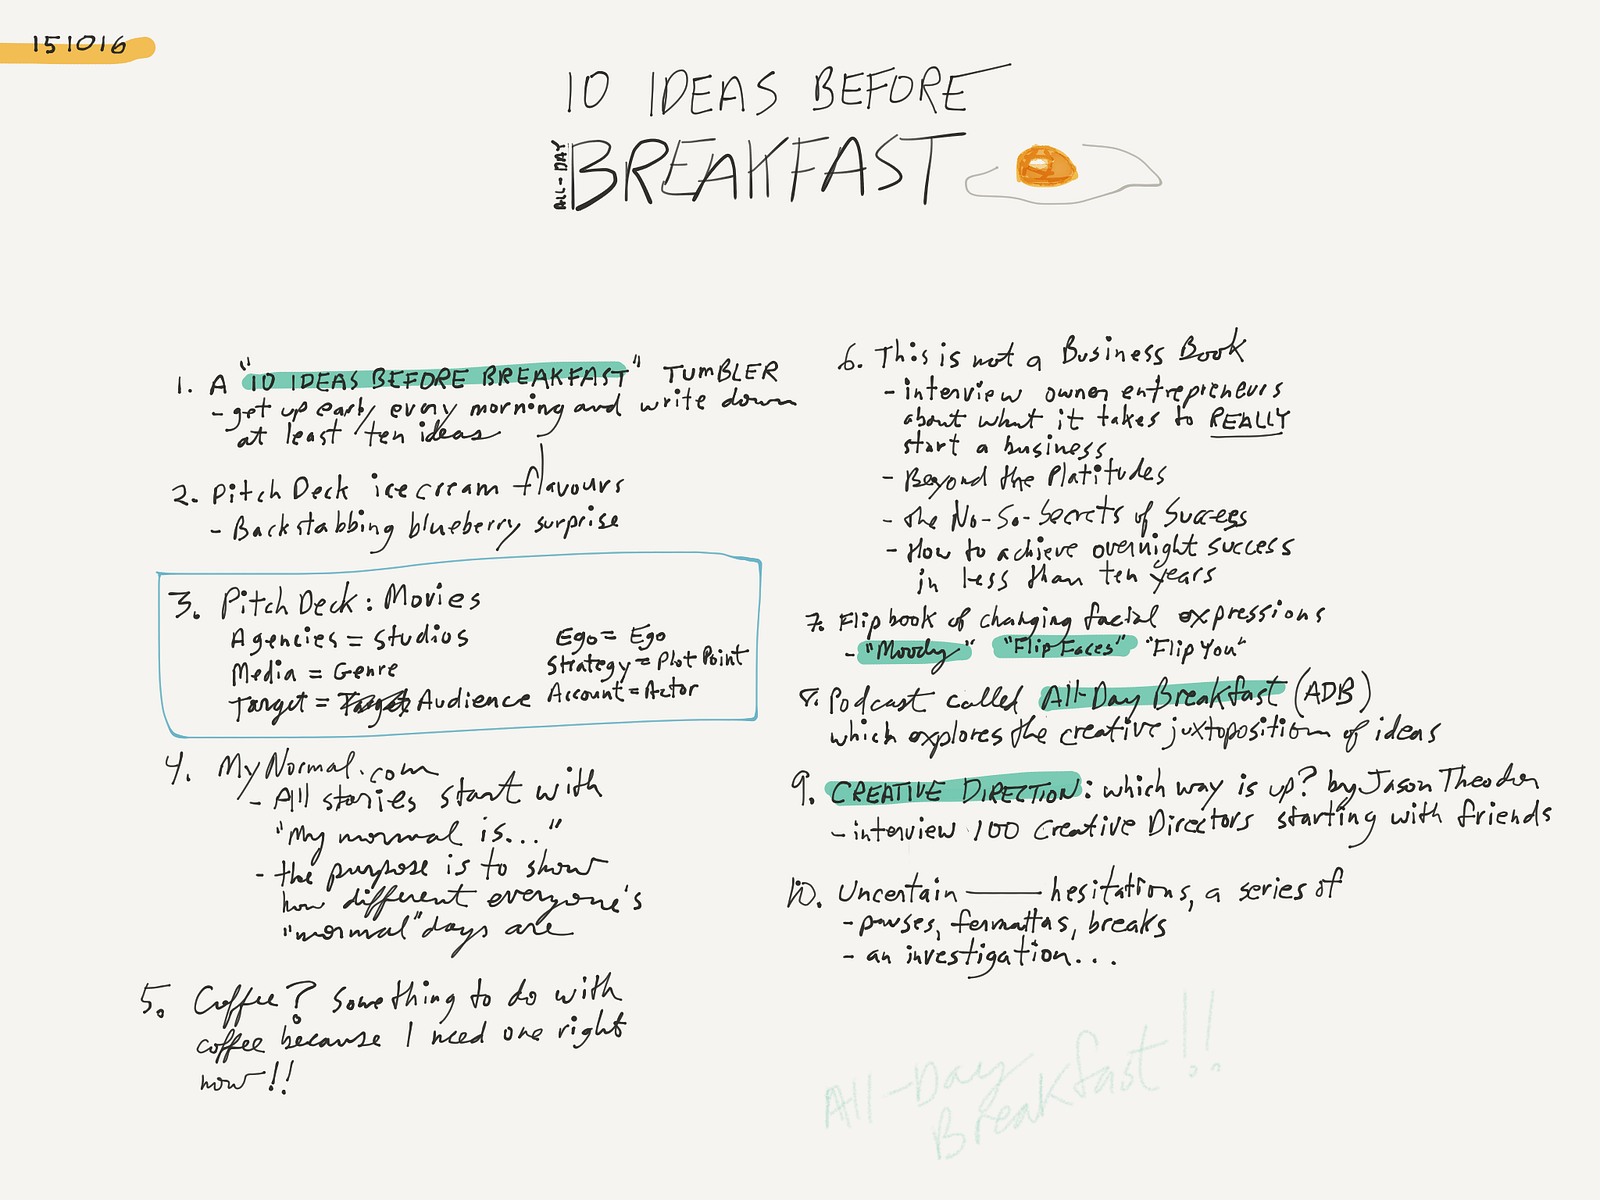 151016
10 IDEAS BEFORE
ALL-DAY
BREAKFAST
1. A "10 IDEAS BEFORE BREAKFAST" TUMBLER
- get up early every morning and write down
at least ten ideas
2. Pitch Deck ice cream flavours
- Backstabbing blueberry surprise
3. Pitch Deck: Movies
Agencies = studios
Media = Genre
Target = Target Audience
Ego = Ego
Strategy = Plot Point
Account = Actor
4. MyNormal.com
- All stories start with
"My normal is..."
- the purpose is to show
how different everyone's
"normal" days are
5. Coffee? Something to do with
coffee because I need one right
now!!
6. This is not a Business Book
- interview owner entrepreneurs
about what it takes to REALLY
start a business
- Beyond the Platitudes
- the No-So-Secrets of Success
- How to achieve overnight success
in less than ten years
7. Flipbook of changing facial expressions
- "Moody" "Flip Faces" "Flip You"
8. Podcast called All-Day Breakfast (ADB)
which explores the creative juxtoposition of ideas
9. CREATIVE DIRECTION: which way is up? by Jason Theodor
- interview 100 Creative Directors starting with friends
10. Uncertain —— hesitations, a series of
- pauses, fermattas, breaks
- an investigation...
All-Day
Breakfast!!